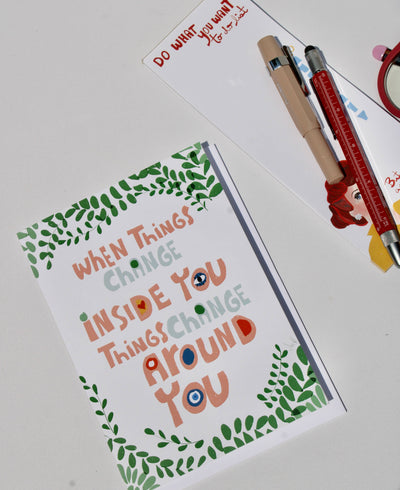 DO WHAT YOU WANT
to do list
WHEN THINGS
CHANGE
INSIDE YOU
THINGS CHANGE
AROUND
YOU